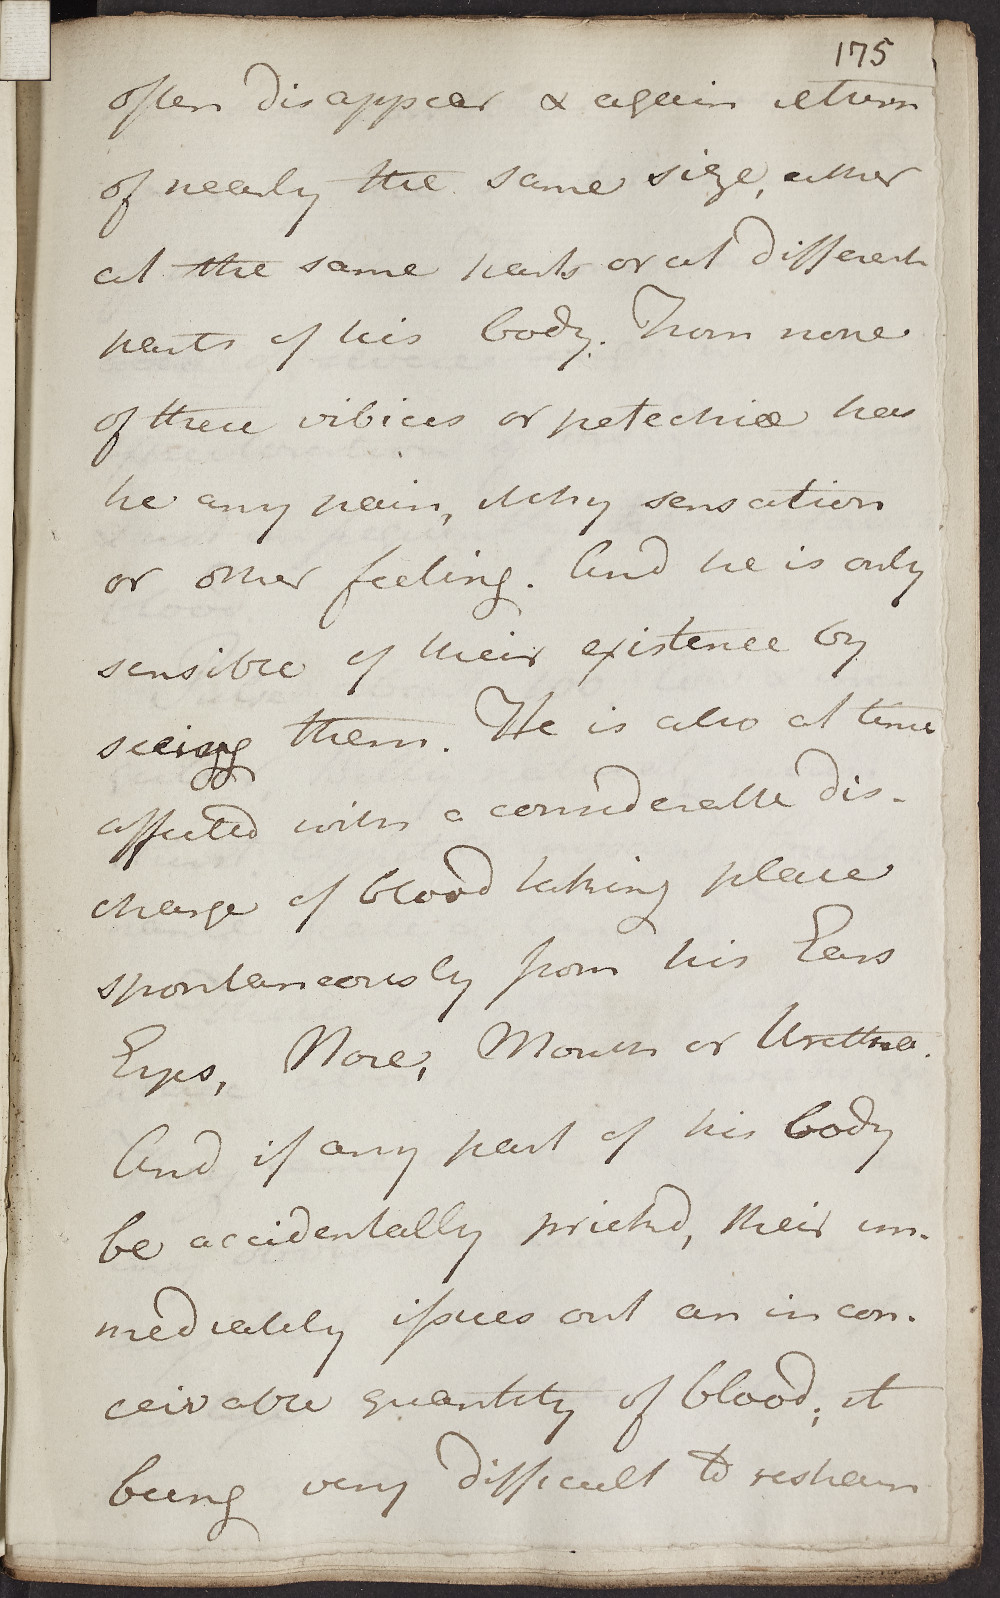 175
often disappear & again return
of nearly the same size, either
at the same parts or at different
parts of his body. From none
of these vibices or petechiæ has
he any pain, itchy sensation
or other feeling. And he is only
sensible of their existence by
seeing them. He is also at times
affected with a considerable dis-
charge of blood taking place
spontaneously from his Ears
Eyes, Nose, Mouth or Urethra.
And if any part of his body
be accidentally pricked, their im-
mediately issues out an incon-
ceivable quantity of blood; it
being very difficult to restrain